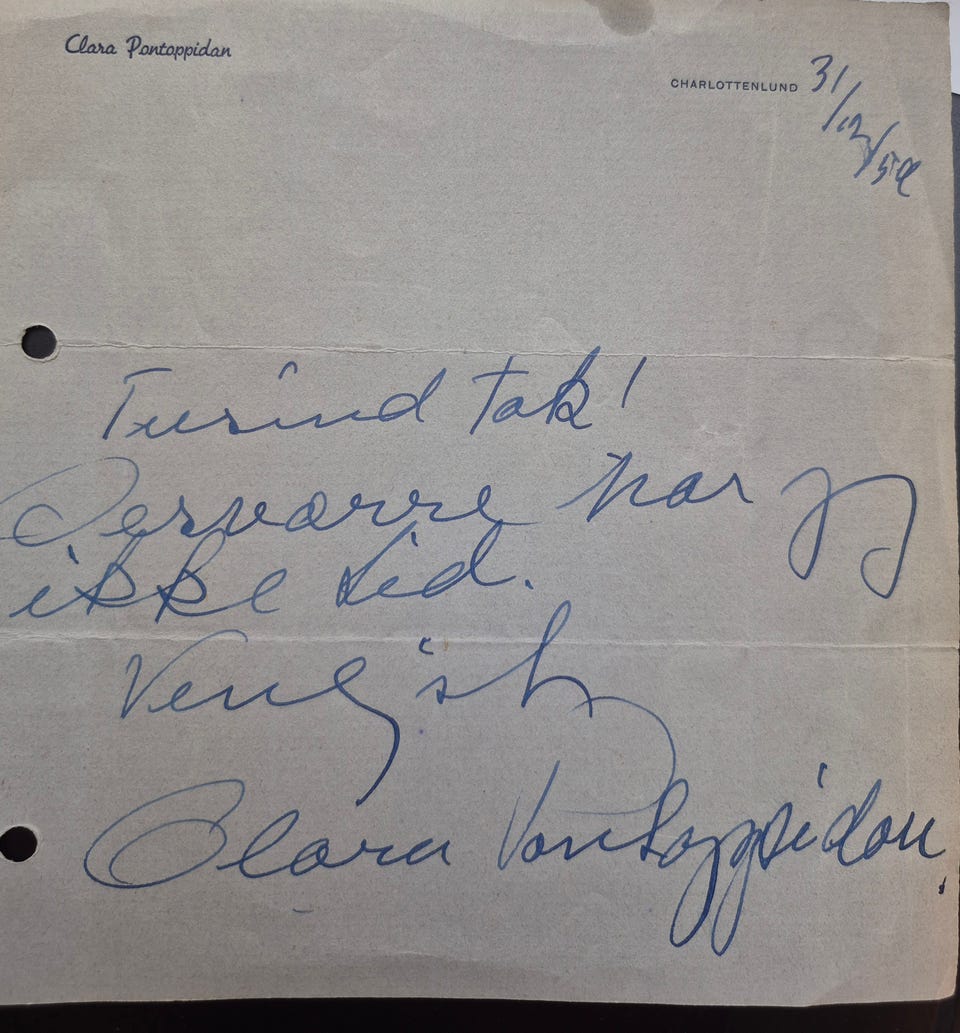 Clara Pontoppidan
CHARLOTTENLUND 31/12/59
Tusind tak!
Desværre har jeg
ikke tid.
Venligst
Clara Pontoppidan